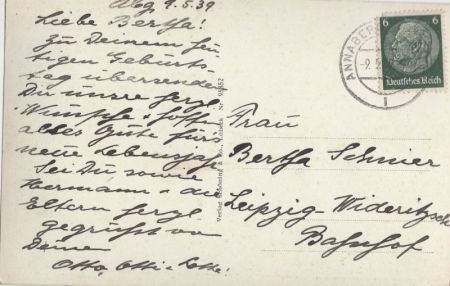 Abg 9.5.39
Liebe Bertha!
Zu Deinem heu-
tigen Geburts-
tag übersenden
Dir unsre herzl.
Wünsche u. hoffen
alles Gute fürs
neue Lebensjahr
Sei Du, sowie
Hermann u. die
Eltern herzl.
gegrüsst von
Deine
Otto, Otti u. Lotte!
Verlag
Nr.
ANNABERG
-9.5
1
6 6
Deutsches Reich
Frau
Bertha Schnier
Leipzig-Wideritzsch
Bahnhof